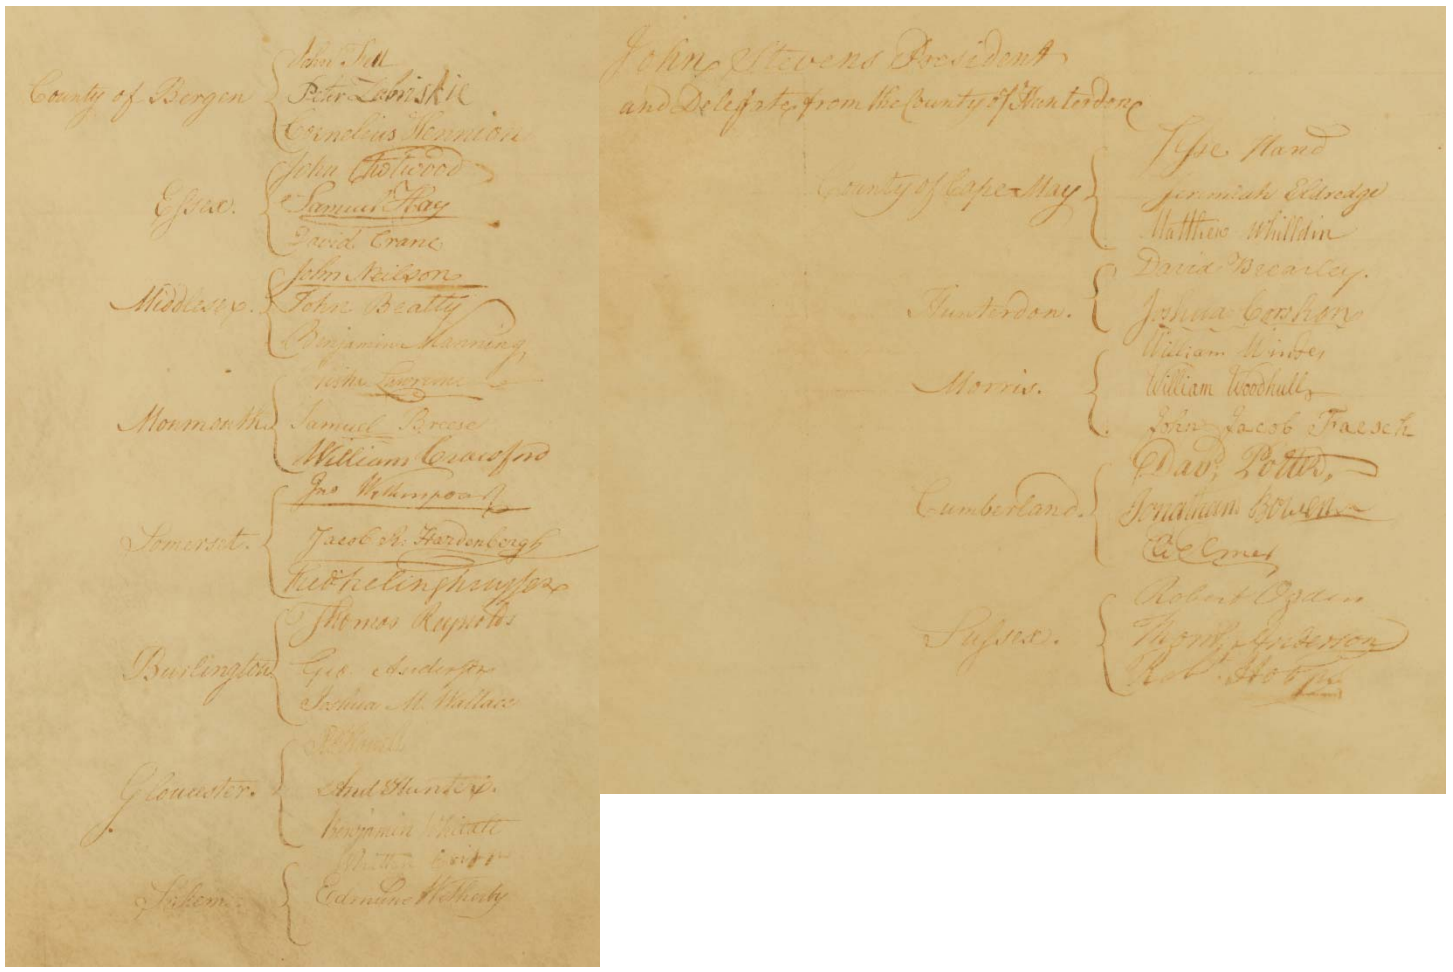 County of Bergen
John Fell
Peter Zabriskie
Cornelius Hennion
Essex.
John Chetwood
Samuel Hay
David Crane
Middlesex.
John Neilson
John Beatty
Benjamin Manning
Monmouth
Elisha Lawrence
Samuel Breese
William Crawford
Somerset.
Jno Witherspoon
Jacob R. Hardenbergh
Fredk Frelinghuysen
Burlington
Thomas Reynolds
Geo. Anderson
Joshua M. Wallace
Gloucester.
And Hunter.
Benjamin Whitall
Salem.
Whitten Cripps
Edmund Wetherby
John Stevens President
and Delegate from the County of Hunterdon
County of Cape-May
Jesse Hand
Jeremiah Eldredge
Matthew Whilldin
Hunterdon.
David Brearley.
Joshua Corshon
Morris.
William Windes
William Woodhull
John Jacob Faesch
Cumberland.
David Potter,
Jonathan Bowen
Eli Elmer
Sussex.
Robert Ogden
Thoms. Anderson
Robt. Hoops